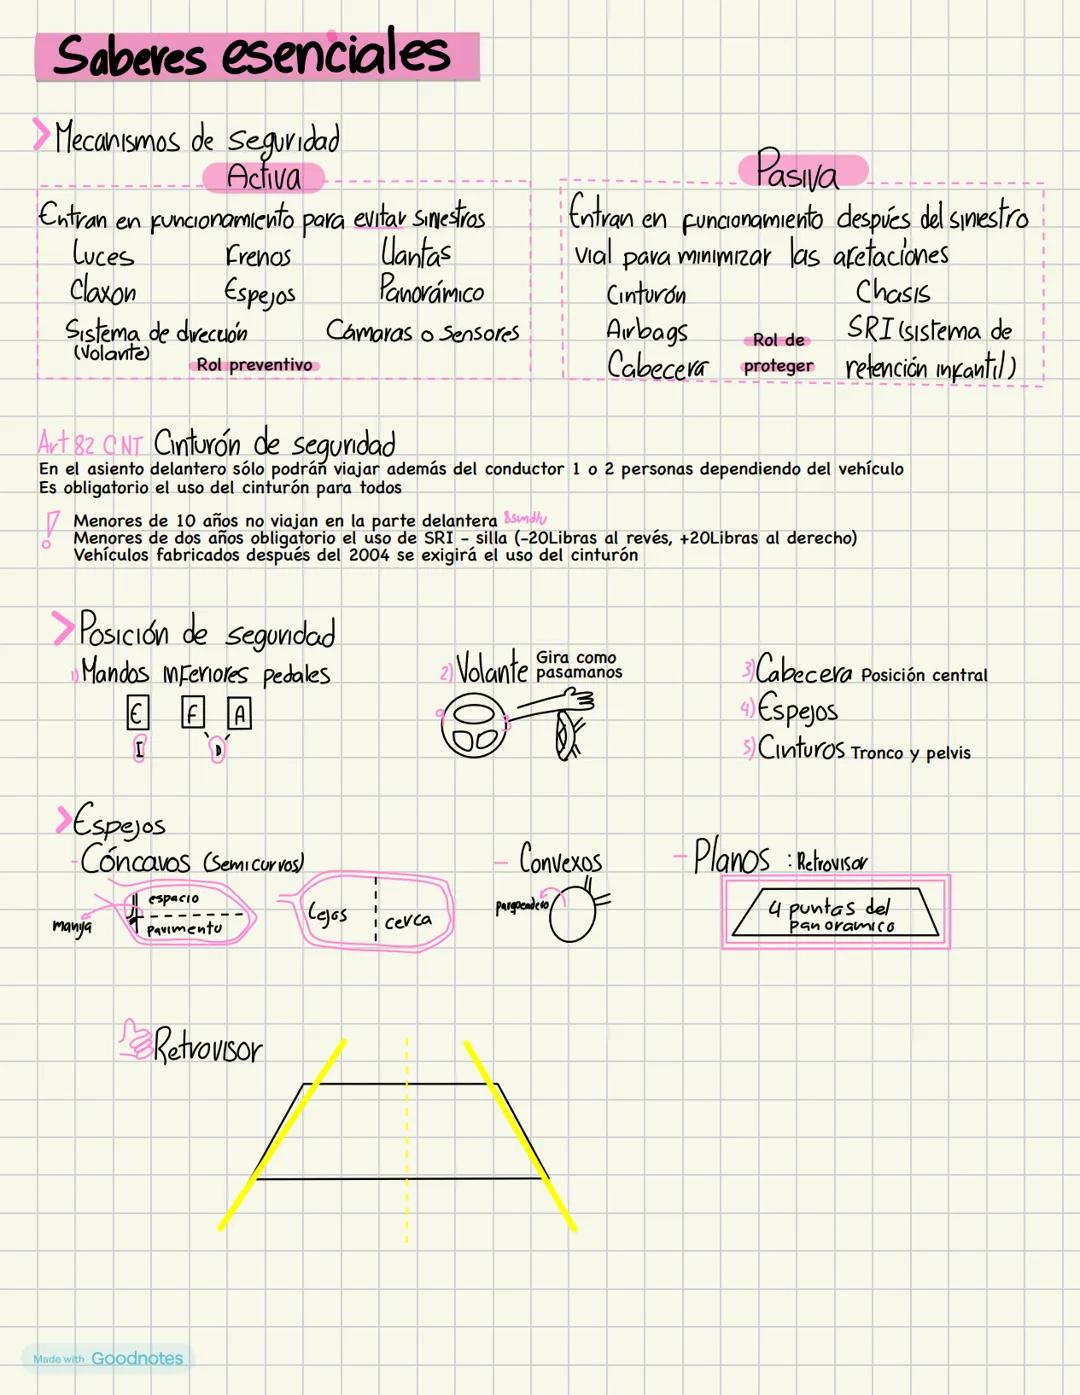 Saberes esenciales
Mecanismos de seguridad
Activa
Entran en funcionamiento para evitar siniestros
Luces Frenos Llantas
Claxon Espejos Panorámico
Sistema de dirección Cámaras o sensores
(Volante)
Rol preventivo
Pasiva
Entran en funcionamiento después del siniestro
vial para minimizar las afetaciones
Cinturón Chasis
Airbags SRI (sistema de
Cabecera retención infantil)
Rol de
proteger
Art 82 CNT Cinturón de seguridad
En el asiento delantero sólo podrán viajar además del conductor 1 o 2 personas dependiendo del vehículo
Es obligatorio el uso del cinturón para todos
! Menores de 10 años no viajan en la parte delantera
Menores de dos años obligatorio el uso de SRI - silla (-20Libras al revés, +20Libras al derecho)
Vehículos fabricados después del 2004 se exigirá el uso del cinturón
Posición de seguridad
1) Mandos inferiores pedales
E F A
I D
2) Volante Gira como
pasamanos
9 3
3) Cabecera Posición central
4) Espejos
5) Cinturos Tronco y pelvis
Espejos
- Cóncavos (Semicurvos)
espacio
manija pavimento
Lejos cerca
- Convexos
parqueadero
- Planos : Retrovisor
4 puntas del
panoramico
Retrovisor
Made with Goodnotes